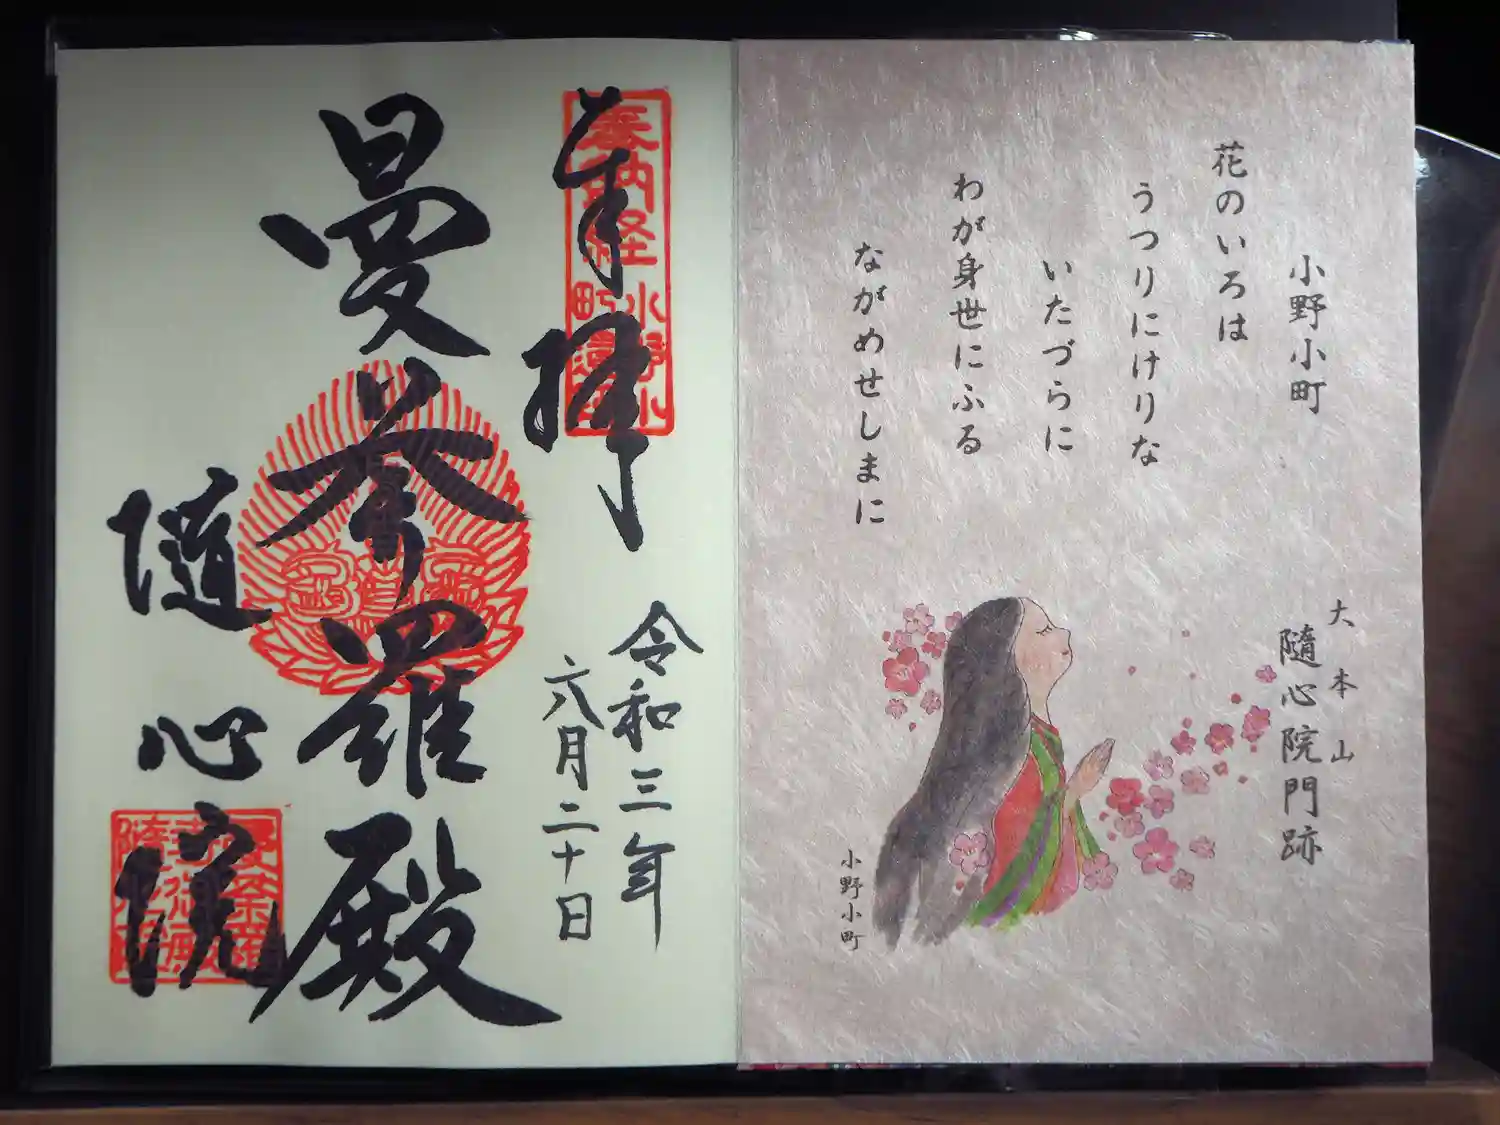 小野小町
花のいろは
うつりにけりな
いたづらに
わが身世にふる
ながめせしまに
大本山
隨心院門跡
小野小町
奉拝
奉納経
小野小
町
令和三年
六月二十日
曼荼羅殿
隨心院